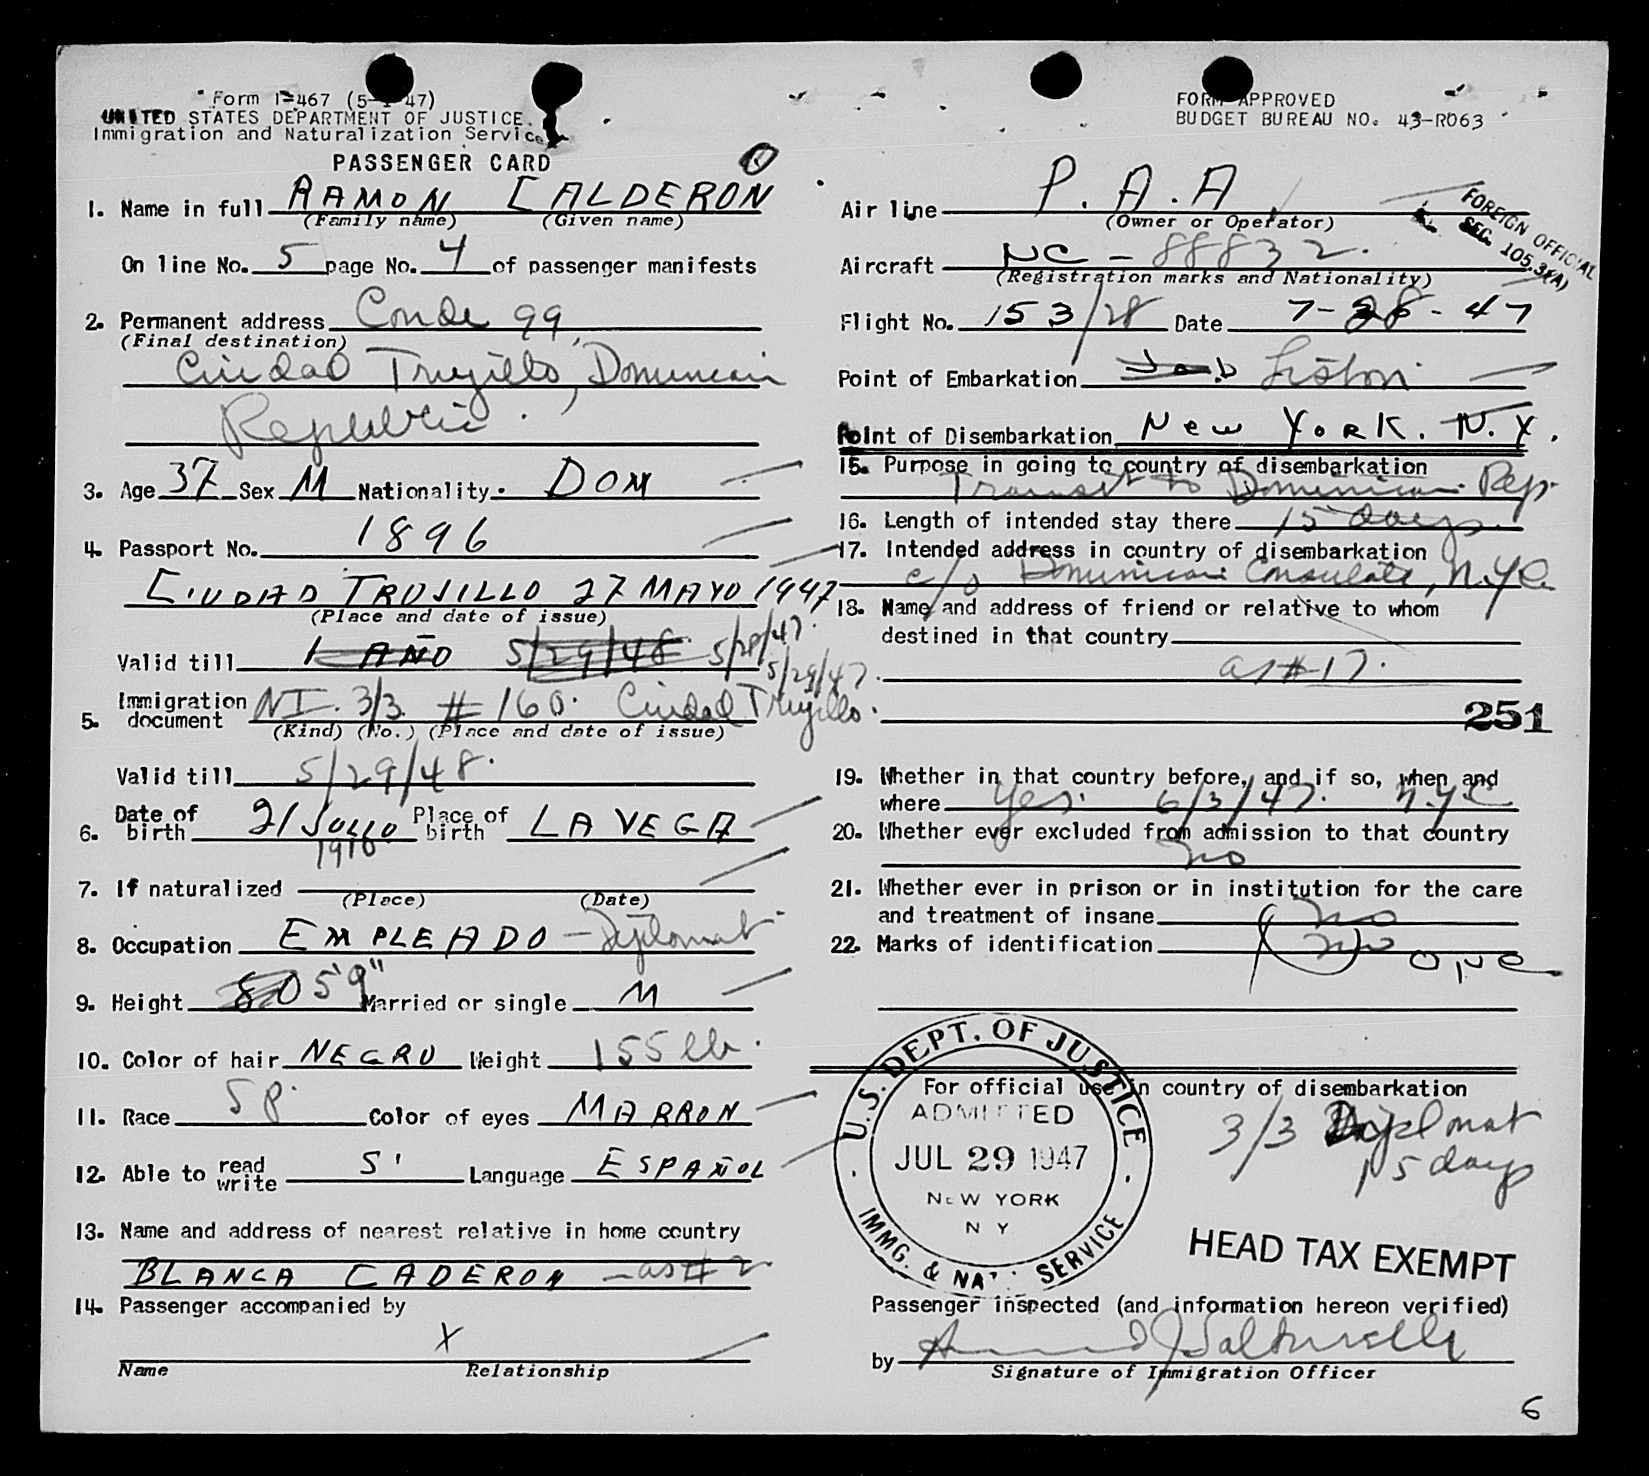 Form I-467 (5-1-47)
UNITED STATES DEPARTMENT OF JUSTICE
Immigration and Naturalization Service
PASSENGER CARD
1. Name in full RAMON CALDERON
(Family name) (Given name)
On line No. 5 page No. 4 of passenger manifests
2. Permanent address Conde 99,
(Final destination)
Ciudad Trujillo, Dominican
Republic.
3. Age 37 Sex M Nationality DOM
4. Passport No. 1896
CIUDAD TRUJILLO 27 MAYO 1947
(Place and date of issue)
Valid till 1 AÑO 5/29/48 5/28/47.
5/29/47.
5. Immigration document NI. 3/3 # 160. Ciudad Trujillo.
(Kind) (No.) (Place and date of issue)
Valid till 5/29/48.
6. Date of birth 21 JULIO 1910 Place of birth LA VEGA
7. If naturalized
(Place) (Date)
8. Occupation EMPLEADO - Diplomat
9. Height 5'9" Married or single M
10. Color of hair NEGRO Weight 155 lb.
11. Race SP. Color of eyes MARRON
12. Able to read write SI Language ESPAÑOL
13. Name and address of nearest relative in home country
BLANCA CADERON - as # 2
14. Passenger accompanied by
X
Name Relationship
FORM APPROVED
BUDGET BUREAU NO. 43-R063
Air line P.A.A.
(Owner or Operator)
FOREIGN OFFICIAL
SEC. 105.3(A)
Aircraft NC-88832.
(Registration marks and Nationality)
Flight No. 153/28 Date 7-28-47
Point of Embarkation Lisbon
Point of Disembarkation New York. N.Y.
15. Purpose in going to country of disembarkation
Transit to Dominican Rep.
16. Length of intended stay there 15 days.
17. Intended address in country of disembarkation
c/o Dominican Consulate, N.Y.C.
18. Name and address of friend or relative to whom
destined in that country
as #17.
251
19. Whether in that country before, and if so, when and
where Yes. 6/3/47. N.Y.C
20. Whether ever excluded from admission to that country
No
21. Whether ever in prison or in institution for the care
and treatment of insane No
22. Marks of identification None
For official use in country of disembarkation
U.S. DEPT. OF JUSTICE
ADMITTED
JUL 29 1947
NEW YORK
N Y
IMMG. & NAT. SERVICE
3/3 Diplomat
15 days
HEAD TAX EXEMPT
Passenger inspected (and information hereon verified)
by
Signature of Immigration Officer
6